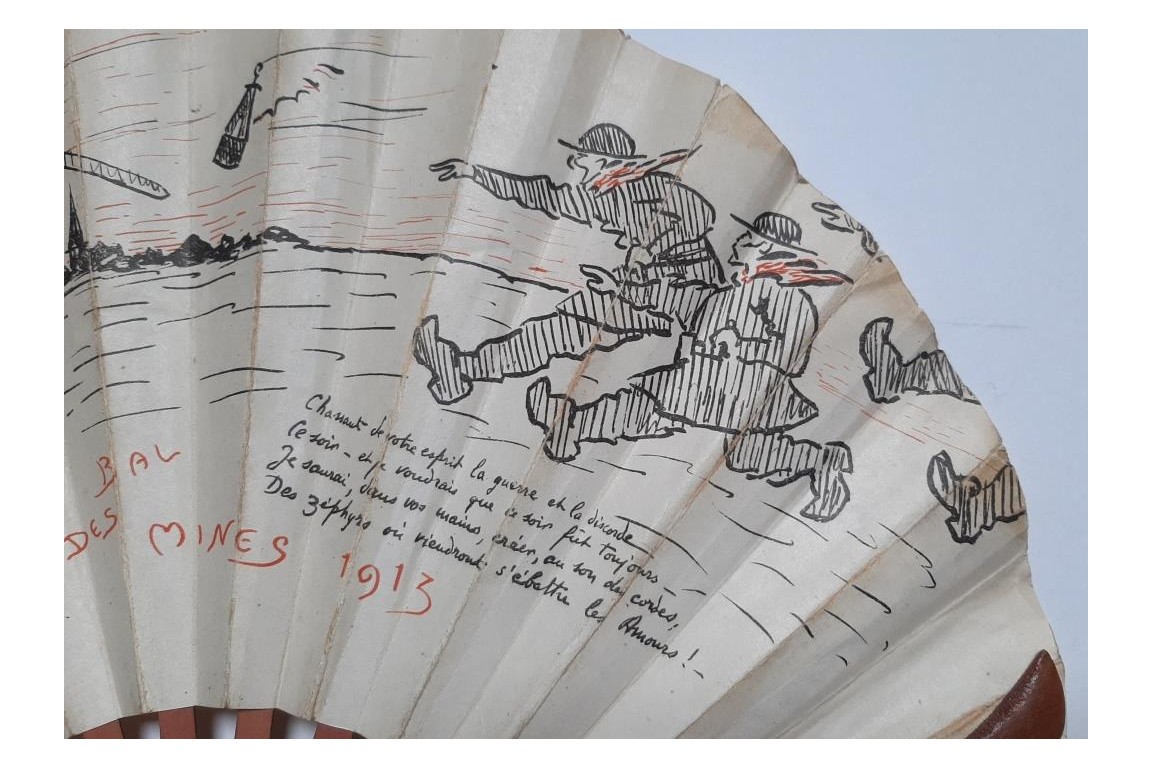 Chassant de votre esprit la guerre et la discorde
Ce soir - et je voudrais que ce soir fût toujours -
Je saurai, dans vos mains, créer, au son des cordes,
Des Zéphyrs où viendront s'ébattre les Amours! -
BAL
DES MINES 1913